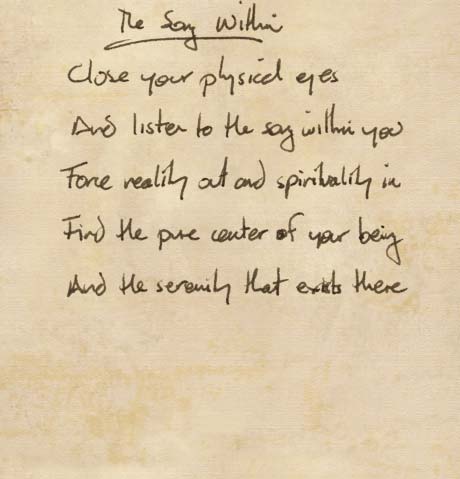 The Song Within
Close your physical eyes
And listen to the song within you
Force reality out and spirituality in
Find the pure center of your being
And the serenity that exists there